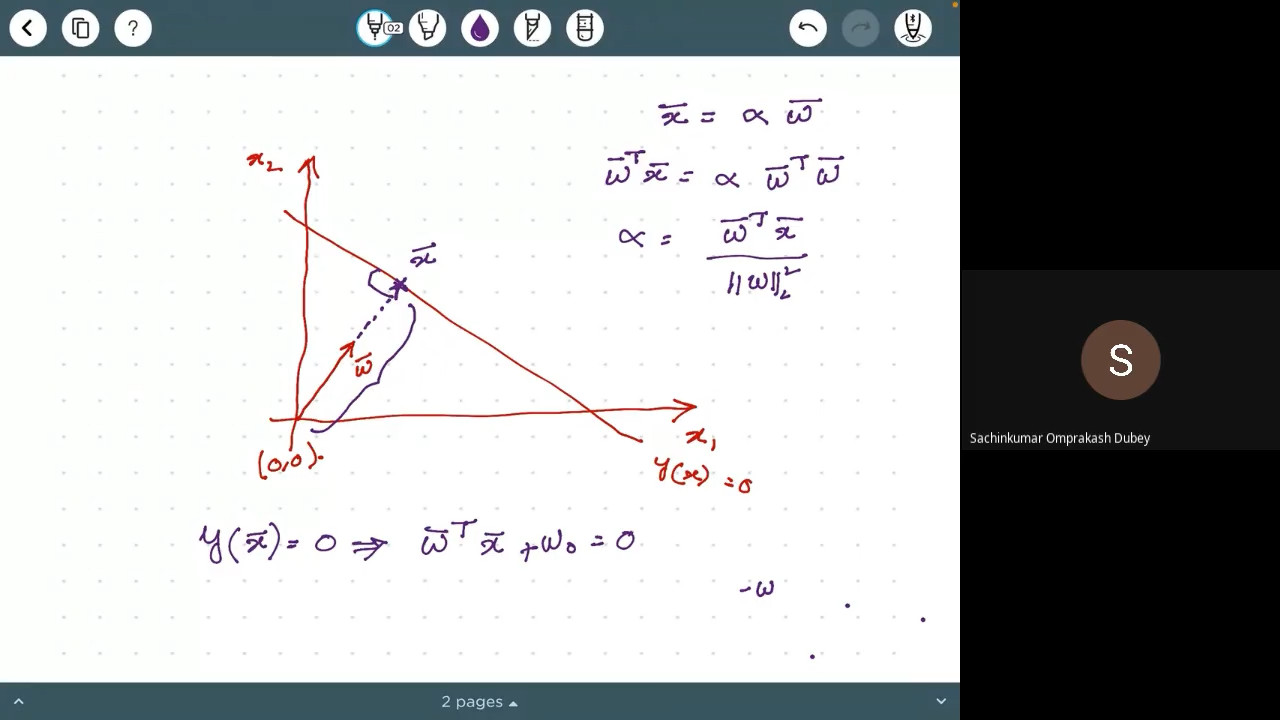 ?
02
x̄ = α w̄
w̄ᵀx̄ = α w̄ᵀ w̄
α = w̄ᵀ x̄
||w||₂²
x₂
x̄
w̄
(0,0).
x₁
y(x) = 0
y(x̄) = 0 ⇒ w̄ᵀ x̄ + w₀ = 0
-w
2 pages
S
Sachinkumar Omprakash Dubey